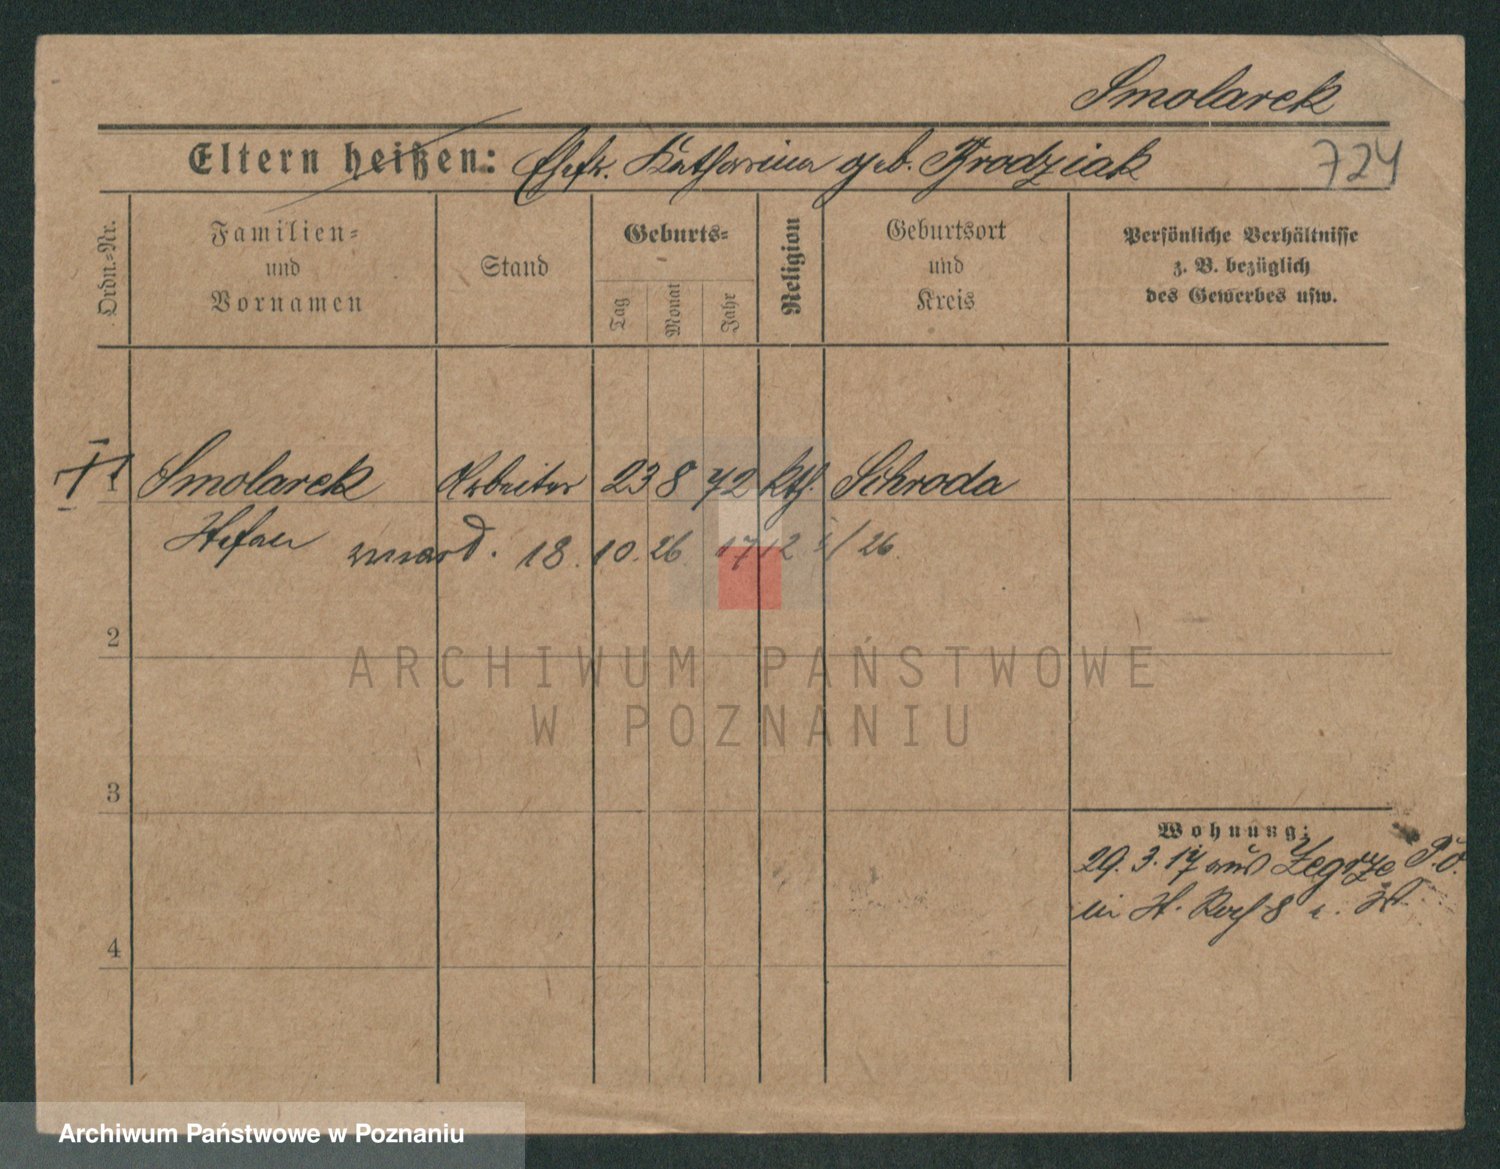 Smolarek
Eltern heißen: Ehefr. Katharina geb. Brodziak 724
Ordn.-Nr.
Familien-
und
Vornamen
Stand
Geburts-
Tag
Monat
Jahr
Religion
Geburtsort
und
Kreis
Persönliche Verhältnisse
z. B. bezüglich
des Gewerbes usw.
1 Smolarek Arbeiter 23 8 72 kth. Schroda
Stefan 18. 10. 26 1712 /26.
2
ARCHIWUM PAŃSTWOWE
W POZNANIU
3
Wohnung:
29. 3. 17 aus Zegrze P. O.
in St. 8
4
Archiwum Państwowe w Poznaniu